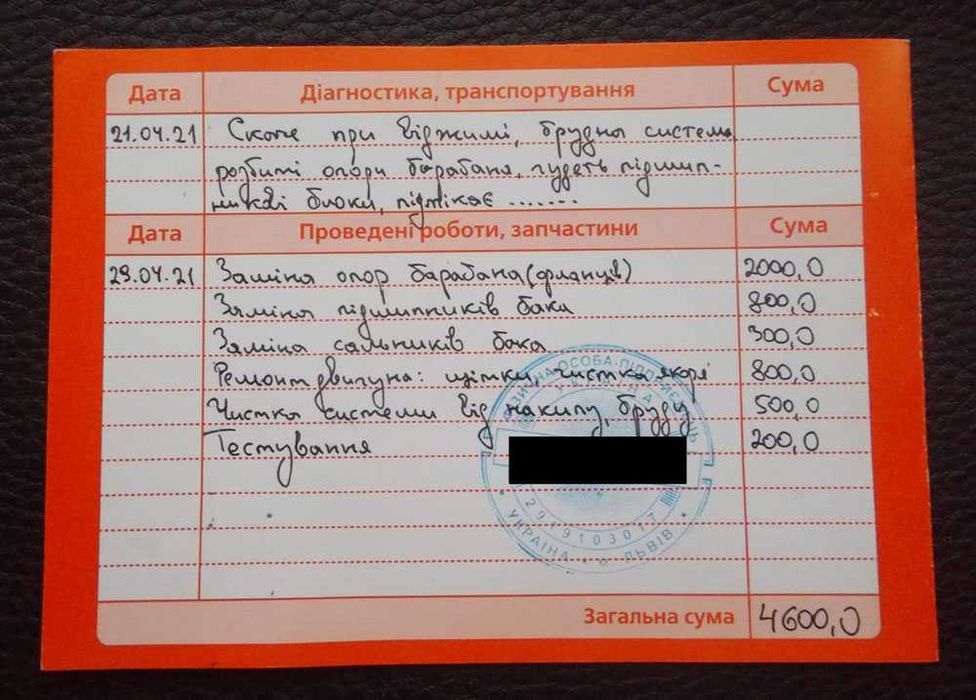 Дата Діагностика, транспортування Сума
21.04.21 Скаче при віджимі, брудна система
розбиті опори барабана, гудеть підшип-
никові блоки, підтікає .......
Дата Проведені роботи, запчастини Сума
29.04.21 Заміна опор барабана (фланців) 2000,0
Заміна підшипників бака 800,0
Заміна сальників бака 300,0
Ремонт двигуна: щітки, чистка якоря 800,0
Чистка системи від накипу, бруду 500,0
Тестування 200,0
ФІЗИЧНА ОСОБА-ПІДПРИЄМЕЦЬ
УКРАЇНА
2919103017
УКРАЇНА * ЛЬВІВ
Загальна сума 4600,0